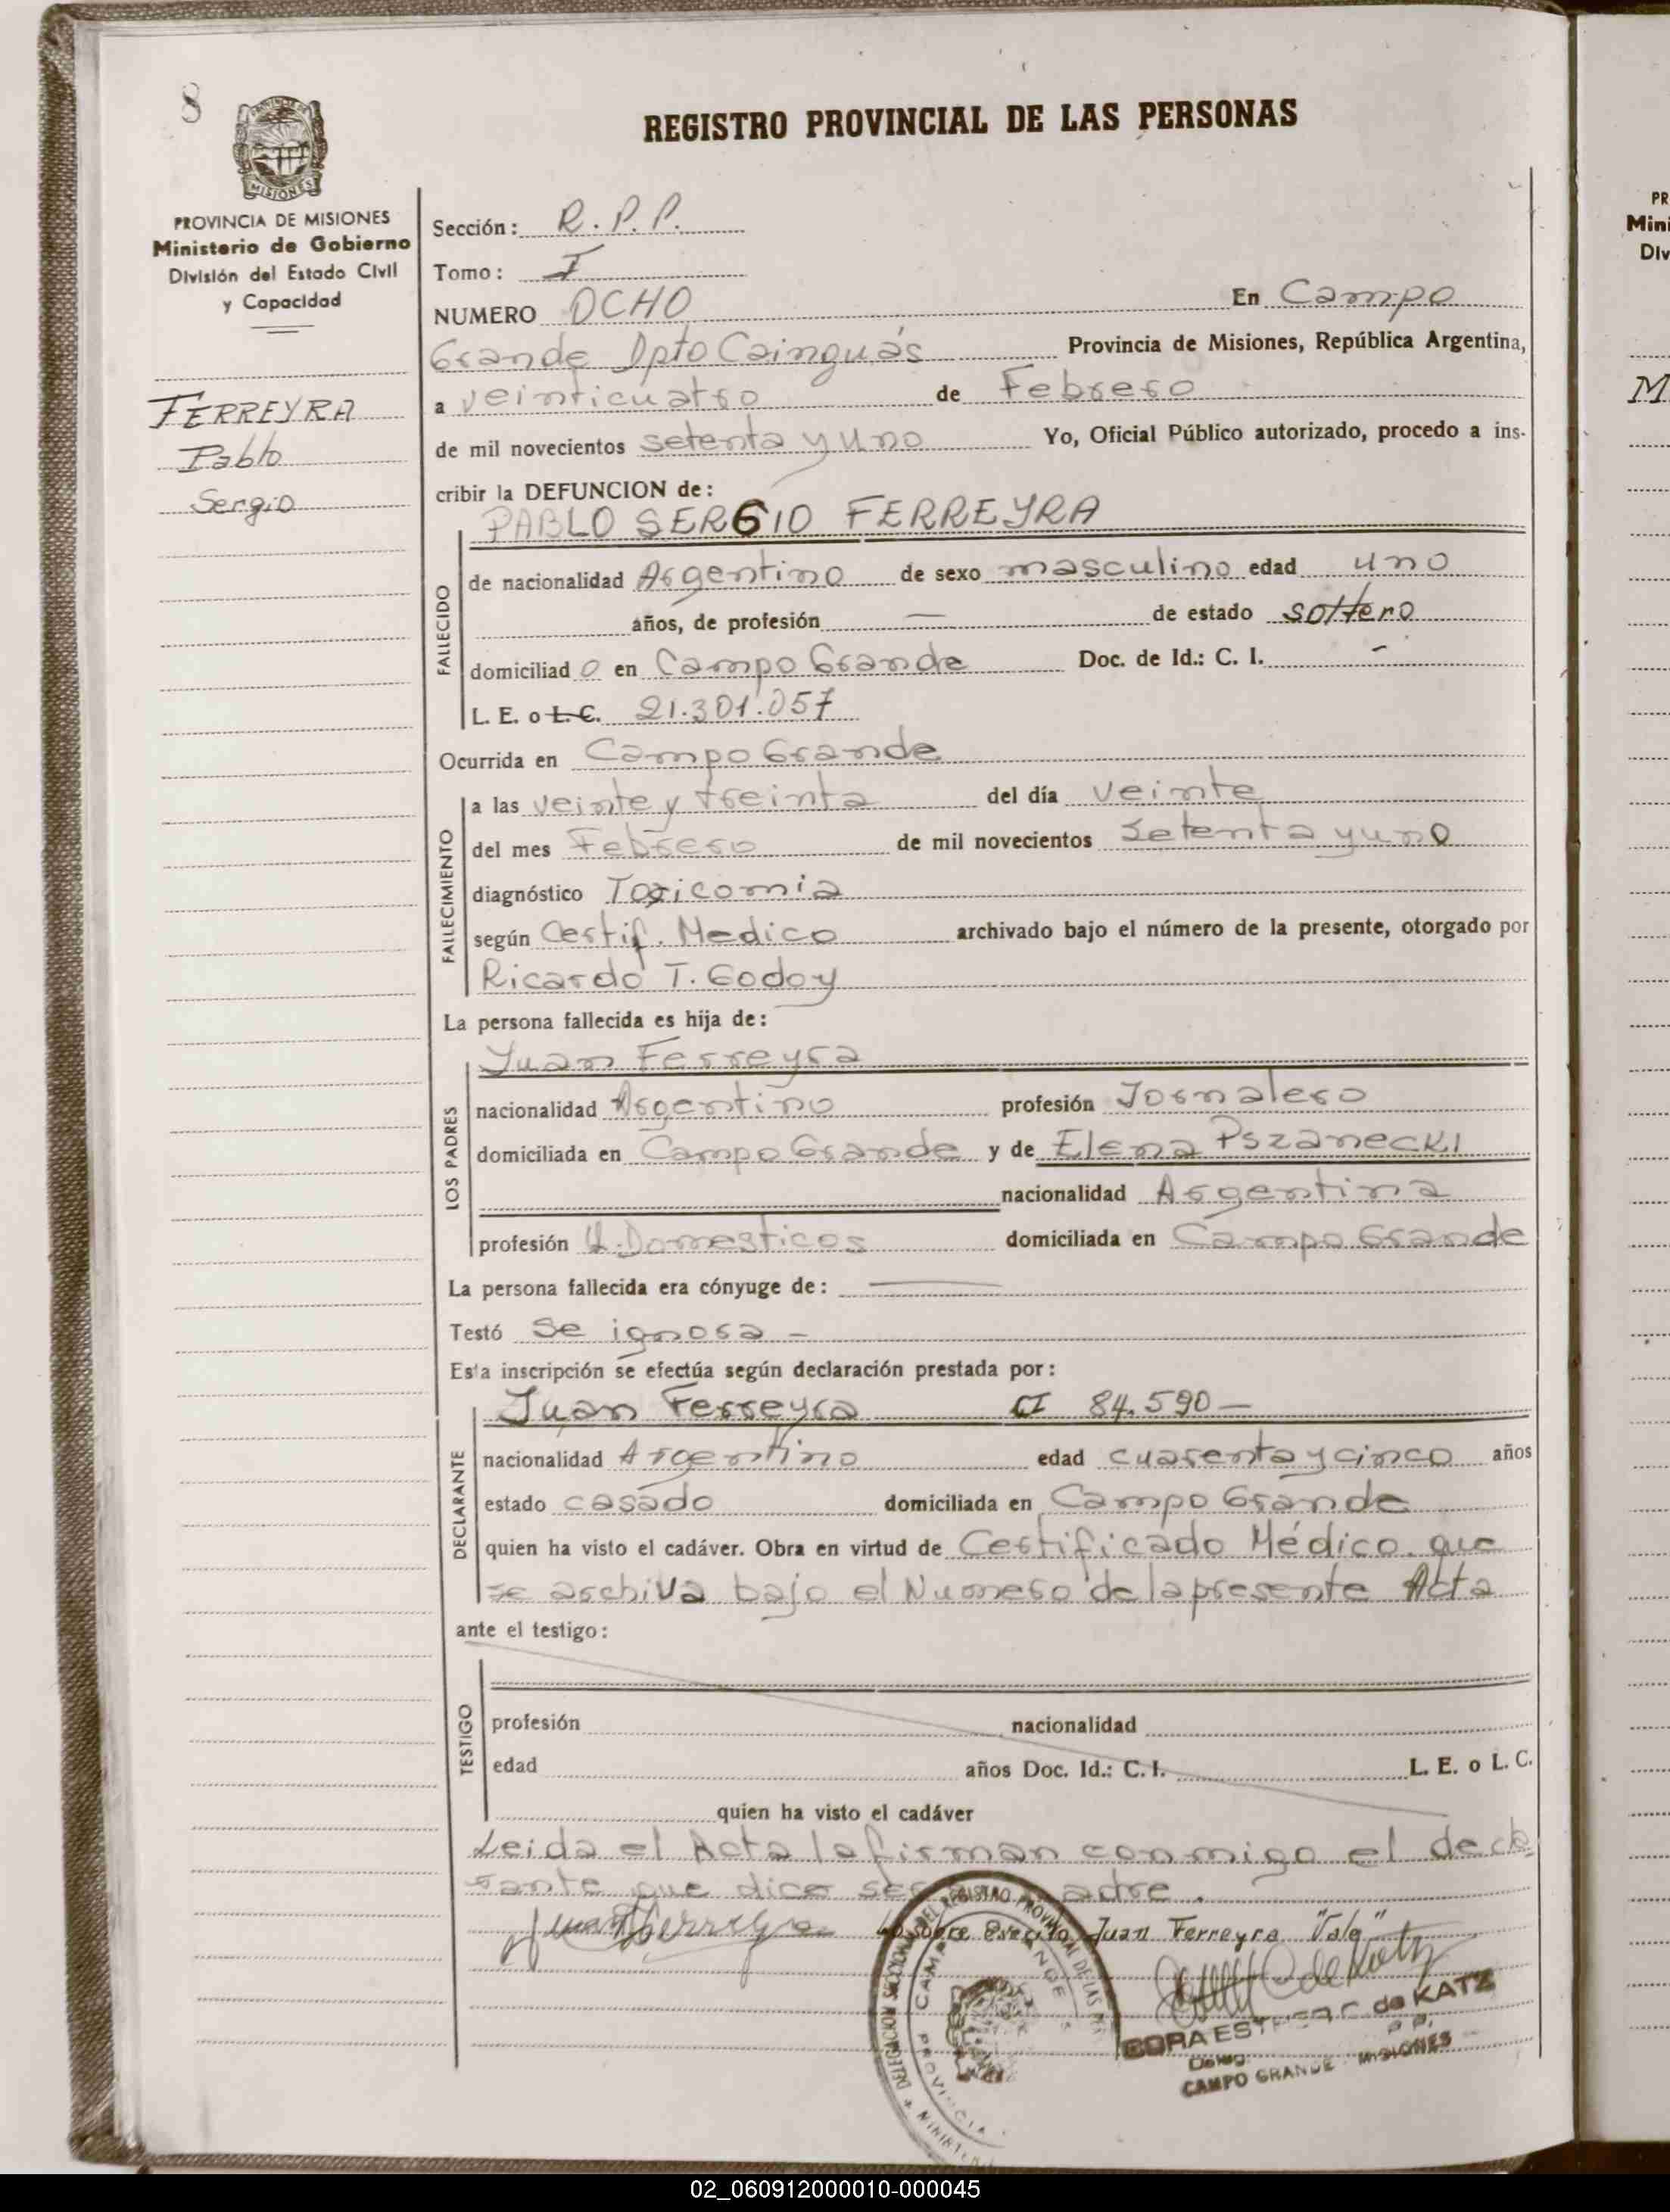 8
REGISTRO PROVINCIAL DE LAS PERSONAS
MISIONES
PROVINCIA DE MISIONES
Ministerio de Gobierno
División del Estado Civil
y Capacidad
FERREYRA
Pablo
Sergio
Sección: R.P.P.
Tomo: I
NUMERO OCHO En Campo
Grande Dpto Cainguás Provincia de Misiones, República Argentina,
a veinticuatro de Febrero
de mil novecientos setenta y uno Yo, Oficial Público autorizado, procedo a ins-
cribir la DEFUNCION de:
PABLO SERGIO FERREYRA
FALLECIDO
de nacionalidad Argentino de sexo masculino edad uno
años, de profesión — de estado soltero
domiciliad o en Campo Grande Doc. de Id.: C. I. -
L. E. o L. C. 21.301.057
Ocurrida en Campo Grande
FALLECIMIENTO
a las veinte y treinta del día veinte
del mes Febrero de mil novecientos setenta y uno
diagnóstico Toxicomia
según Certif. Medico archivado bajo el número de la presente, otorgado por
Ricardo T. Godoy
La persona fallecida es hija de:
LOS PADRES
Juan Ferreyra
nacionalidad Argentino profesión Jornalero
domiciliada en Campo Grande y de Elena Pszanecki
nacionalidad Argentina
profesión Q. Domesticos domiciliada en Campo Grande
La persona fallecida era cónyuge de: —
Testó Se ignora -
Esta inscripción se efectúa según declaración prestada por:
DECLARANTE
Juan Ferreyra CI 84.590 —
nacionalidad Argentino edad cuarenta y cinco años
estado casado domiciliada en Campo Grande
quien ha visto el cadáver. Obra en virtud de Certificado Médico que
se archiva bajo el Numero de la presente Acta
ante el testigo:
TESTIGO
profesión nacionalidad
edad años Doc. Id.: C. I. L. E. o L. C.
quien ha visto el cadáver
Leida el Acta la firman conmigo el decla
rante que dice ser padre.
Lo sobre escrito Juan Ferreyra "Vale"
CORA ESTHER C. de KATZ
CAMPO GRANDE - MISIONES
PR
Mini
Div
M
02_060912000010-000045